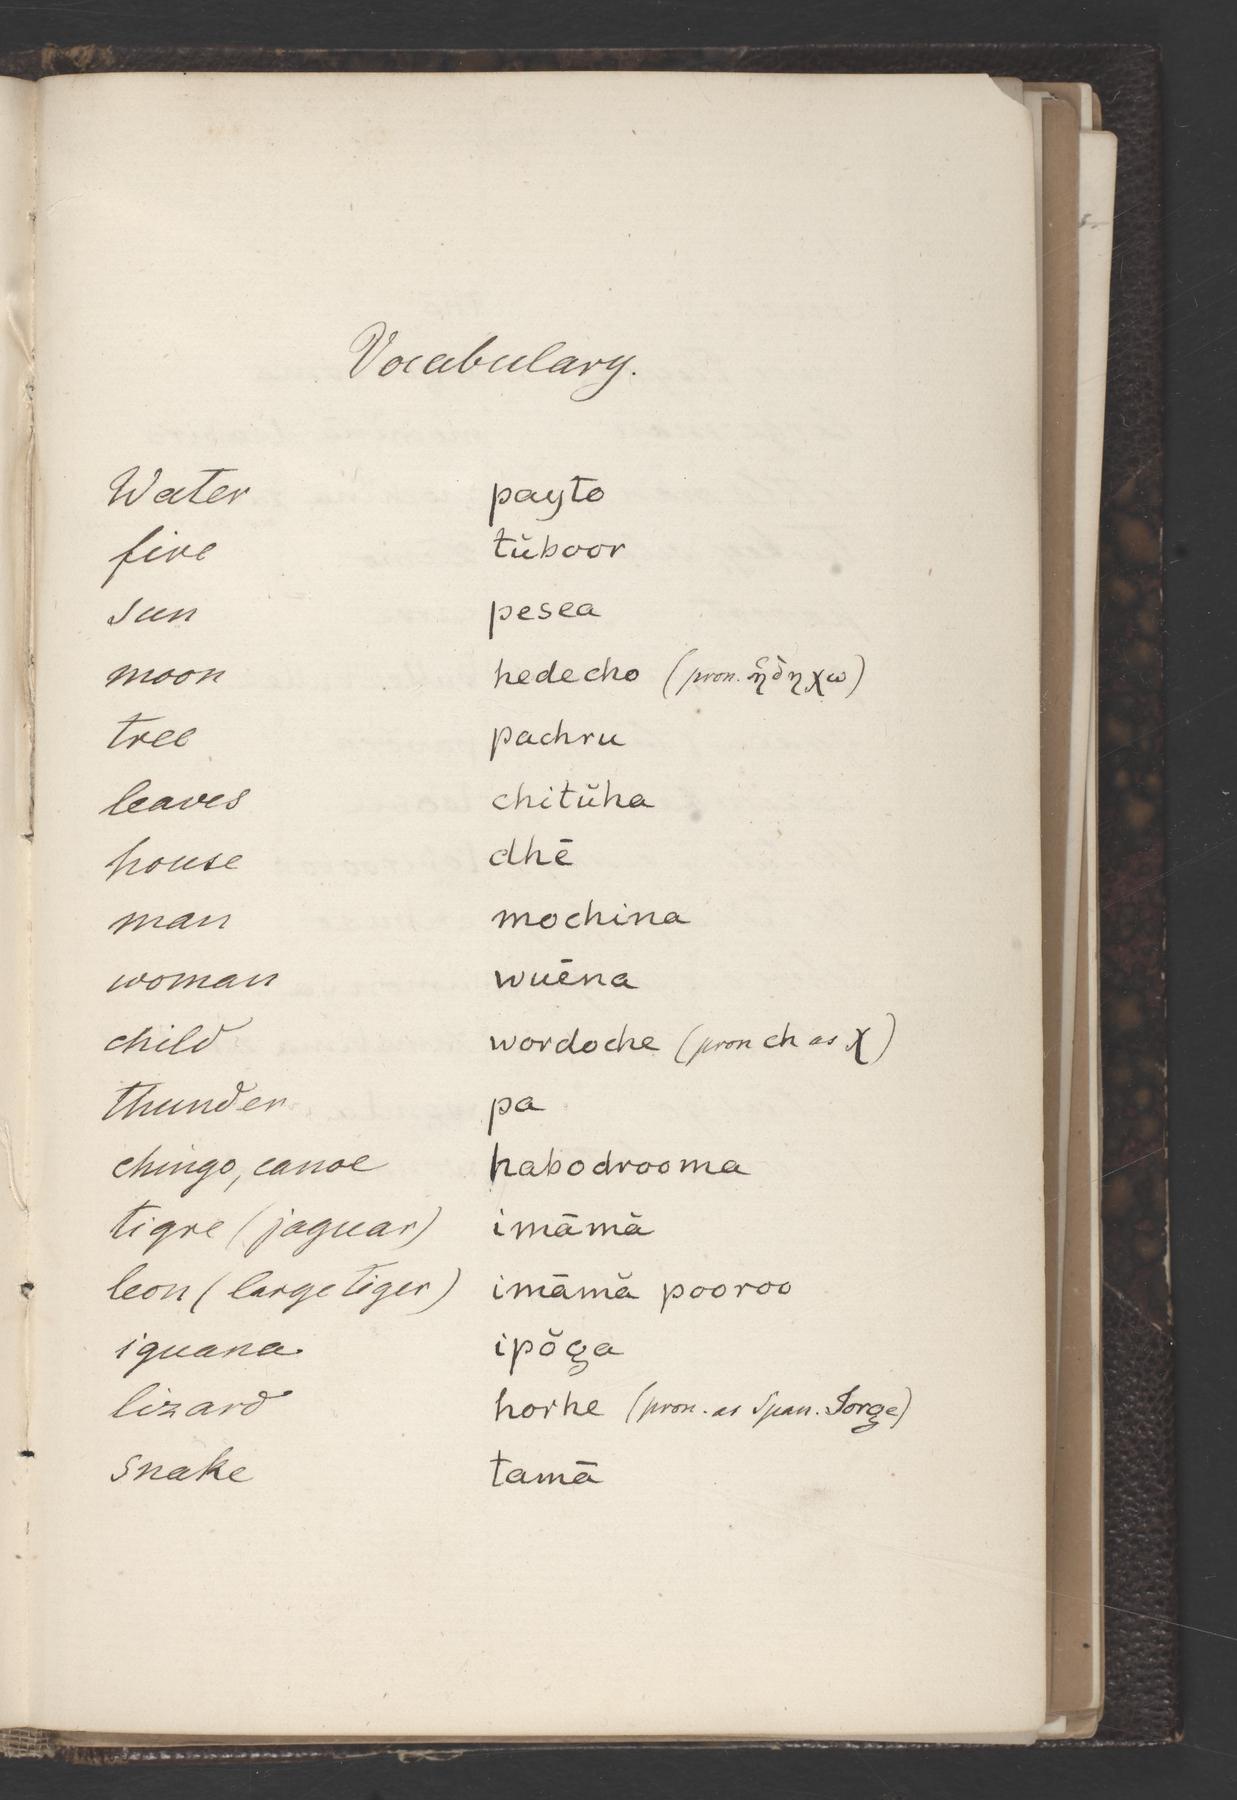 Vocabulary.
Water payto
fire tŭboor
sun pesea
moon hedecho (pron. ἡδηχω)
tree pachru
leaves chitŭha
house dhē
man mochina
woman wuēna
child wordoche (pron ch as χ)
thunder pa
chingo, canoe habodrooma
tigre (jaguar) imāmă
leon (large tiger) imāmă pooroo
iguana ipŏga
lizard horhe (pron. as Span. Jorge)
snake tamā